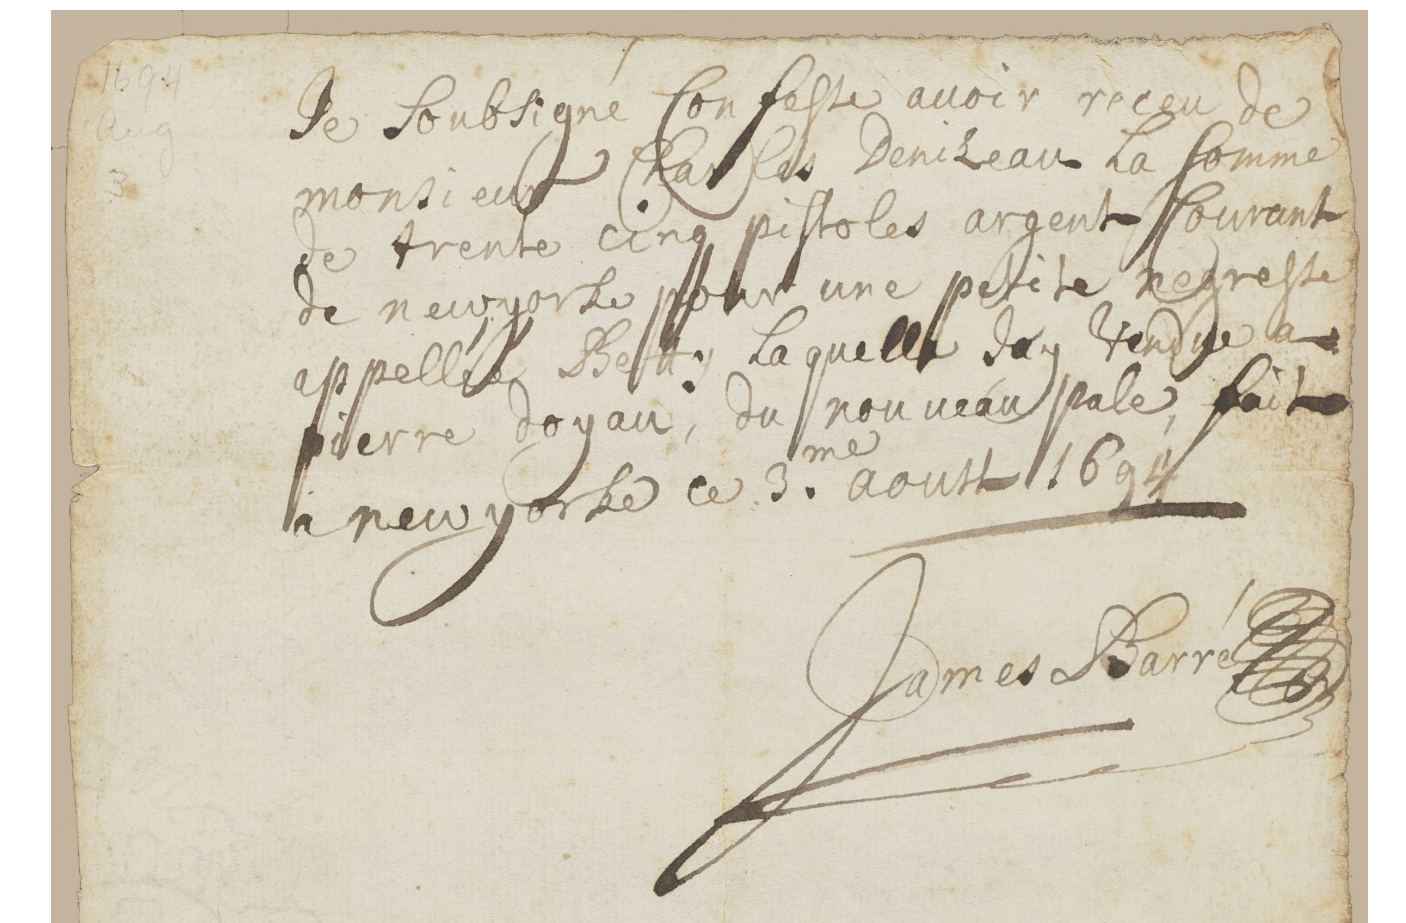 1694
Aug
3
Je Soubsigné Confesse avoir receu de
monsieur Charles Denizeau La somme
de trente cinq pistoles argent Courant
de newyorke pour une petite negresse
appellée Betty Laquelle Jay Vendue a
pierre doyau, du nouveau pale, fait
a newyorke ce 3.me aoust 1694
James Barré